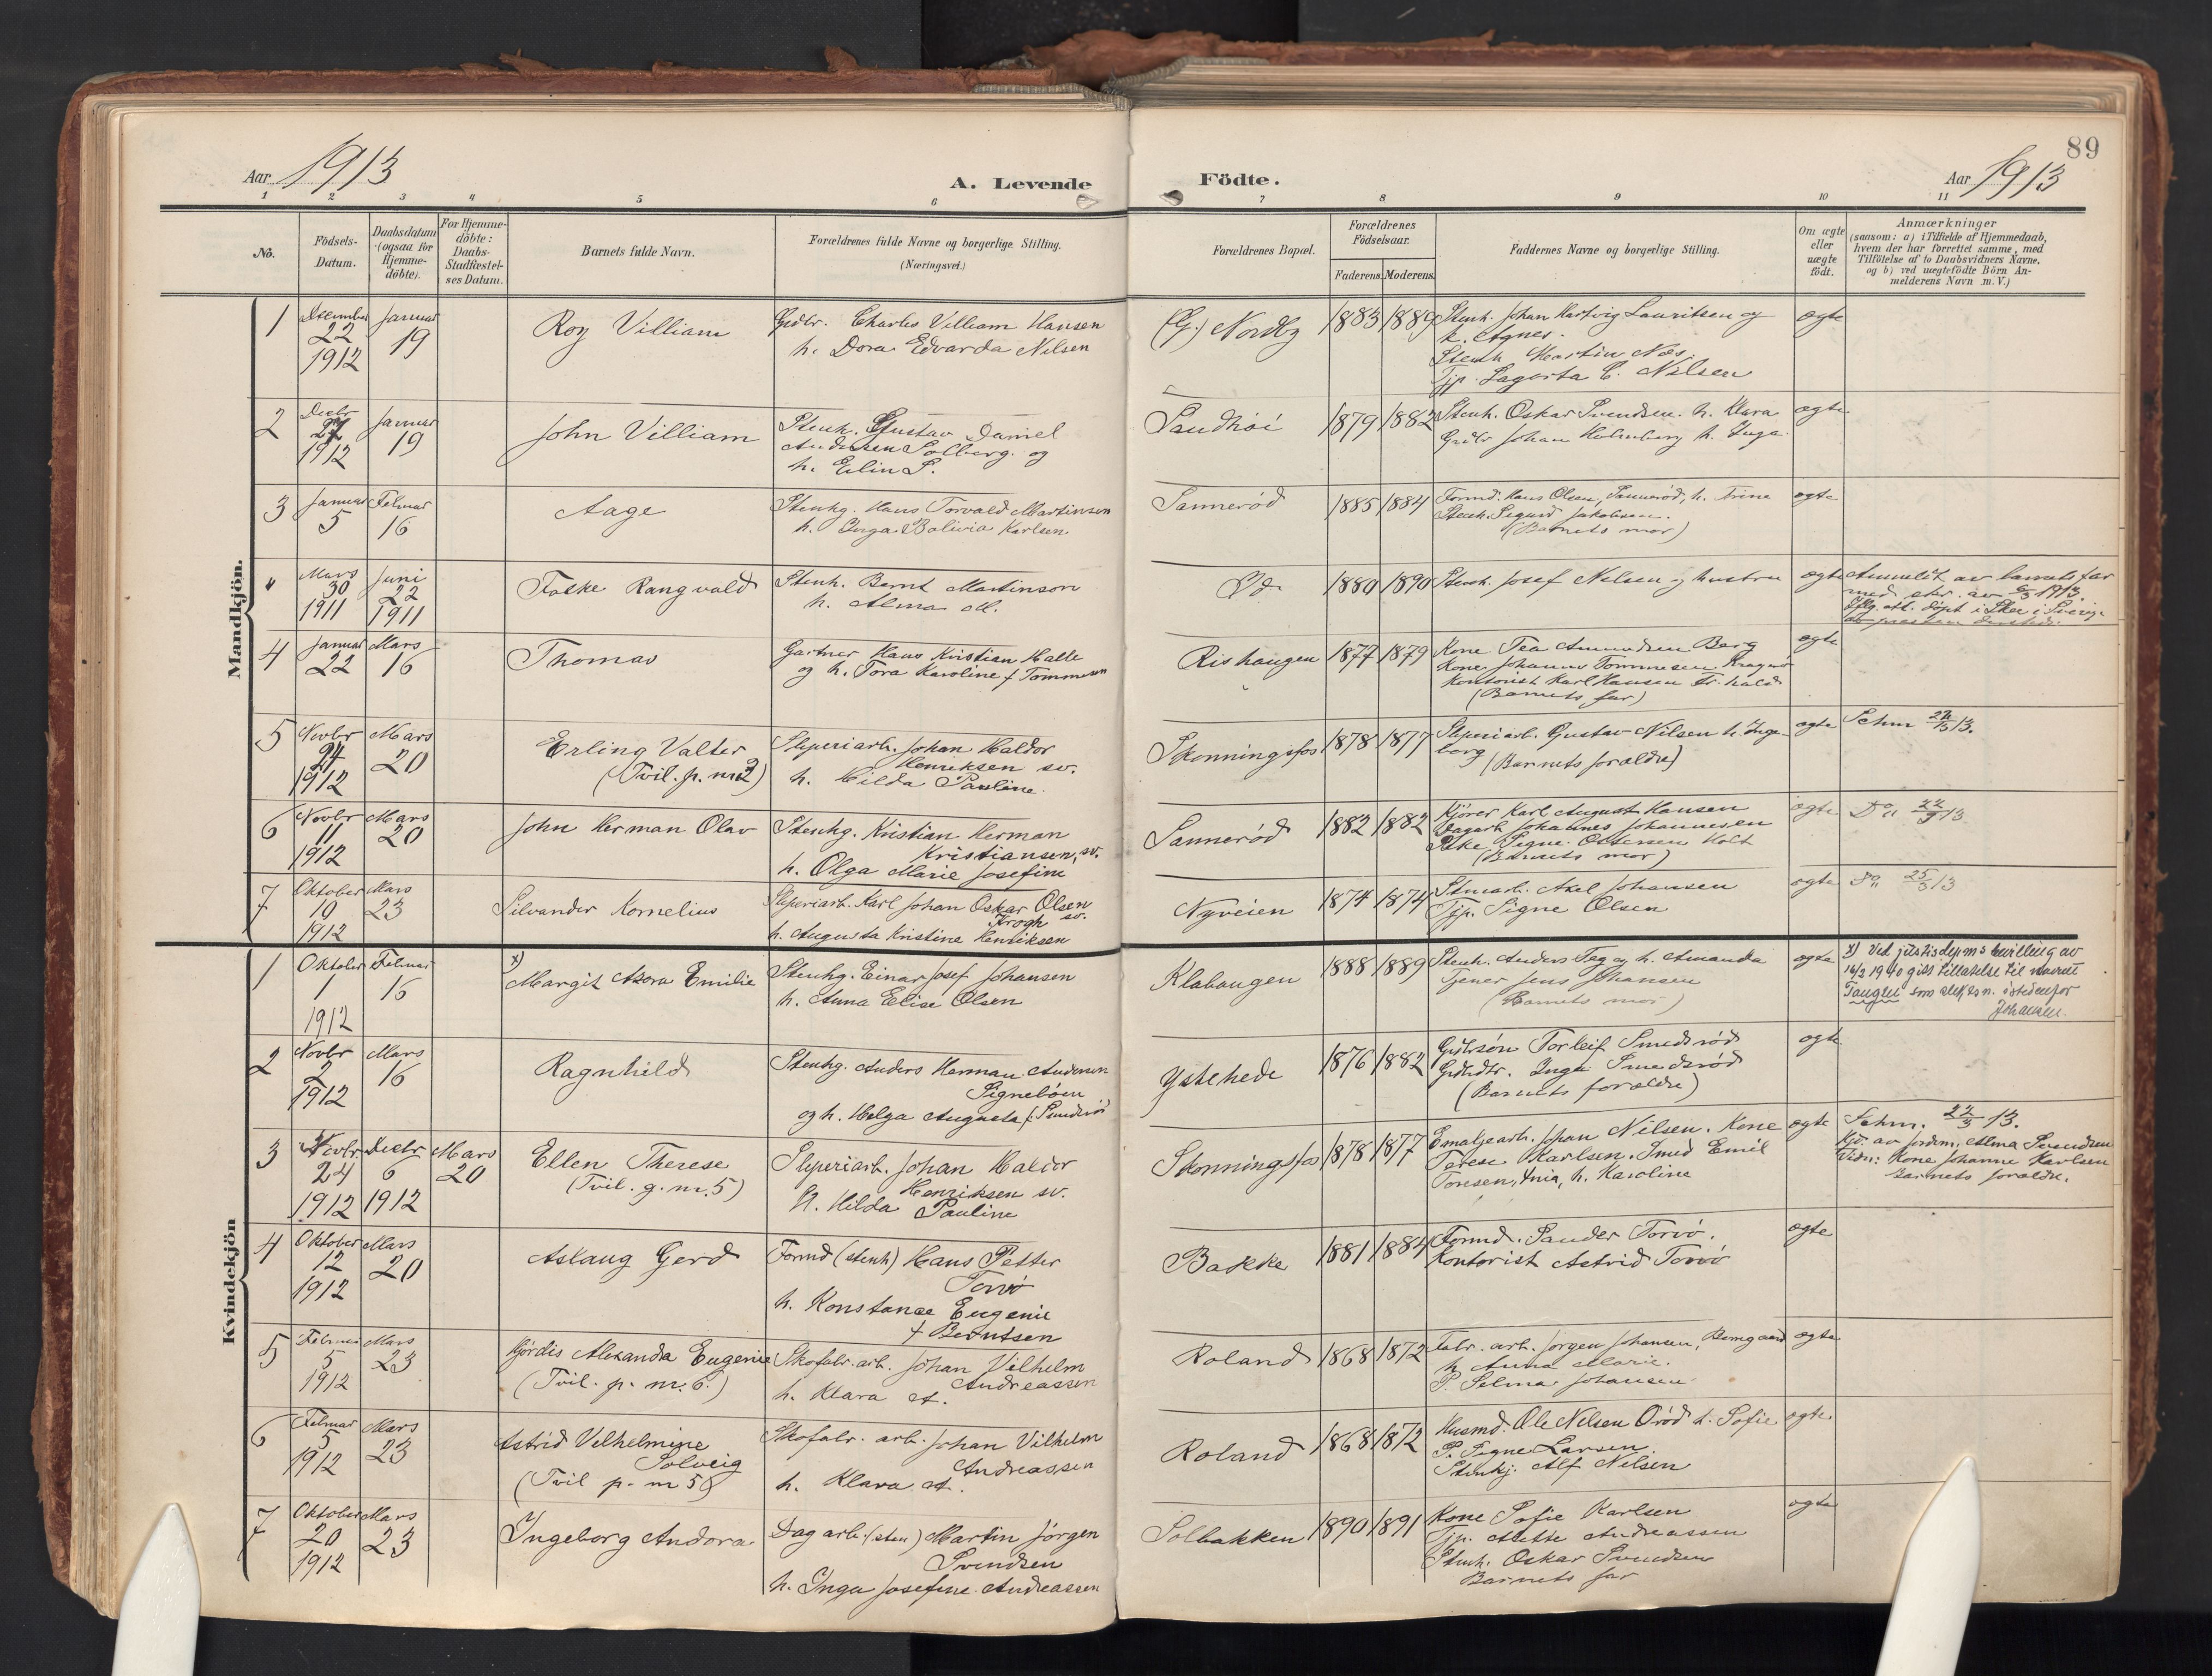 89
Aar 1913
A. Levende
Födte.
Aar 1913
1 2 3 4 5 6 7 8 9 10 11
No.
Födsels-
Datum.
Daabsdatum
(ogsaa for
Hjemme-
döbte).
For Hjemme-
döbte:
Daabs-
Stadfæstel-
ses Datum.
Barnets fulde Navn.
Forældrenes fulde Navne og borgerlige Stilling.
(Næringsvei.)
Forældrenes Bopæl.
Forældrenes
Födselsaar.
Faderens. Moderens.
Faddernes Navne og borgerlige Stilling.
Om ægte
eller
uægte
födt.
Anmærkninger
(saasom: a) i Tilfælde af Hjemmedaab,
hvem der har forrettet samme, med
Tilföielse af to Daabsvidners Navne.
og b) ved uægtefödte Börn An-
melderens Navn m. V.)
Mandkjön.
1
Desember
22
1912
Januar
19
Roy Villiam
Grdbr. Charles Villiam Hansen
h. Dora Edvarda Nilsen
(G.) Nordby
1883
1889
Stenh. Johan Hartvig Lauritsen og
h. Agnes.
Stenh. Martin Næs.
Tjp. Lagerta C. Nilsen
ægte
2
Decbr
27
1912
Januar
19
John Villiam
Stenh. Gustav Daniel
Andersen Solberg og
h. Elin S.
Sandhöi
1879
1882
Stenh. Oskar Svendsen. h. Klara
Grdbr Johan Holmberg h. Inga
ægte
3
Januar
5
Februar
16
Aage
Stenhg. Hans Torvald Martinsen
h. Inga Bolivia Karlsen.
Sannerød
1885
1884
Formd. Hans Olsen, Sannerød, h. Trine
Stenh. Sigurd Jakobsen.
(Barnets mor)
ægte
"
Mars
30
1911
Juni
22
1911
Folke Rangvald
Stenh. Bernt Martinson
h. Alma M.
1880
1890
Stenh. Josef Nelsen og hustru
ægte
Anmeldt av barnets far
4
Januar
22
Mars
16
Thomas
Gartner Hans Kristian Halle
og h. Tora Karoline f Tommesen
Rishaugen
1877
1879
Kone Tea Amundsen Berg
Kone Johanne Tommesen Kragerö
Kontorist Karl Hansen Fr.hald
(Barnets far)
ægte
5
Novbr
24
1912
Mars
20
Erling Valter
(Tvil. p. nr 3)
Sliperiarb. Johan Haldor
Henriksen sv.
h. Hilda Pauline.
Skonningsfos
1878
1877
Sliperiarb. Gustav Nilsen h. Inge-
borg
(Barnets forældre)
ægte
Schm 22/3 13.
6
Novbr
11
1912
Mars
20
John Herman Olav
Stenhg. Kristian Herman
Kristiansen, sv.
h. Olga Marie Josefine
Sannerød
1882
1882
Kjörer Karl August Hansen
Dagarb. Johannes Johannesen
Pike Signe Ottersen Holt
(Barnets mor)
ægte
Do 22/3 13
7
Oktober
10
1912
Mars
23
Silvander Kornelius
Sliperiarb. Karl Johan Oskar Olsen
Krogh sv.
h. Augusta Kristine Henriksen
Nyveien
1874
1874
Stenarb. Axel Johansen
Tjp. Signe Olsen
ægte
Do 25/3 13
Kvindekjön
1
Oktober
1
1912
Februar
16
x)
Margit Azora Emilie
Stenhg. Einar Josef Johansen
h. Anna Elise Olsen
Klabaugen
1888
1889
Stenh. Anders Teg og h. Amanda
Tjener Jens Johansen
(Barnets mor)
ægte
x) Ved justisdepms bevilling av
16/2 1940 gitt tillatelse til navnet
Tangen som slektsn. istedenfor
Johansen.
2
Novbr
2
1912
Mars
16
Ragnhild
Stenhg. Anders Herman Andersen
Signebøen
og h. Helga Augusta f. Smedsröd
Ystehede
1876
1882
Grdbrsøn Torleif Smedsrød
Grdbrdtr. Inga Smedsrød
(Barnets forældre)
ægte
3
Novbr
24
1912
Decbr
6
1912
Mars
20
Ellen Therese
(Tvil. g. nr. 5)
Sliperiarb. Johan Haldor
Henriksen sv.
h. Hilda Pauline
Skonningsfos
1878
1877
Emaljearb. Johan Nilsen. Kone
Terese Karlsen. Smed Emil
Toresen, h. Karoline
ægte
Schm. 22/3 13.
Hjd. av jordm. Alma Svendsen
Vidn: Kone Johanne Karlsen
Barnets forældre.
4
Oktober
12
1912
Mars
20
Aslaug Gerd
Formd (stenh) Hans Petter
Torvö
h. Konstanse Eugenie
f Berntsen
Bakke
1881
1884
Formd. Sander Torvö.
Kontorist Astrid Torvö
ægte
5
Februar
5
1912
Mars
23
Hjördis Alexanda Eugenie
(Tvil. p. nr. 6.)
Skofabr. arb. Johan Vilhelm
Andreassen
h. Klara A.
Roland
1868
1872
Fabr. arb. Jørgen Johansen, Bomgaard
h. Anna Marie.
P. Selma Johansen
ægte
6
Februar
5
1912
Mars
23
Astrid Vilhelmine
Solveig
(Tvil p. nr 5)
Skofabr. arb. Johan Vilhelm
Andreassen
h. Klara A.
Roland
1868
1872
Husmd. Ole Nilsen Orød h. Sofie
P. Signe Larsen.
Stenhj. Alf Nilsen
ægte
7
Oktober
20
1912
Mars
23
Ingeborg Andora
Dagarb. (sten) Martin Jörgen
Svendsen
h. Inga Josefine Andreassen
Solbakken
1890
1891
Kone Sofie Karlsen
Tjp. Mette Andreassen
Stenh. Oskar Svendsen
Barnets far
ægte